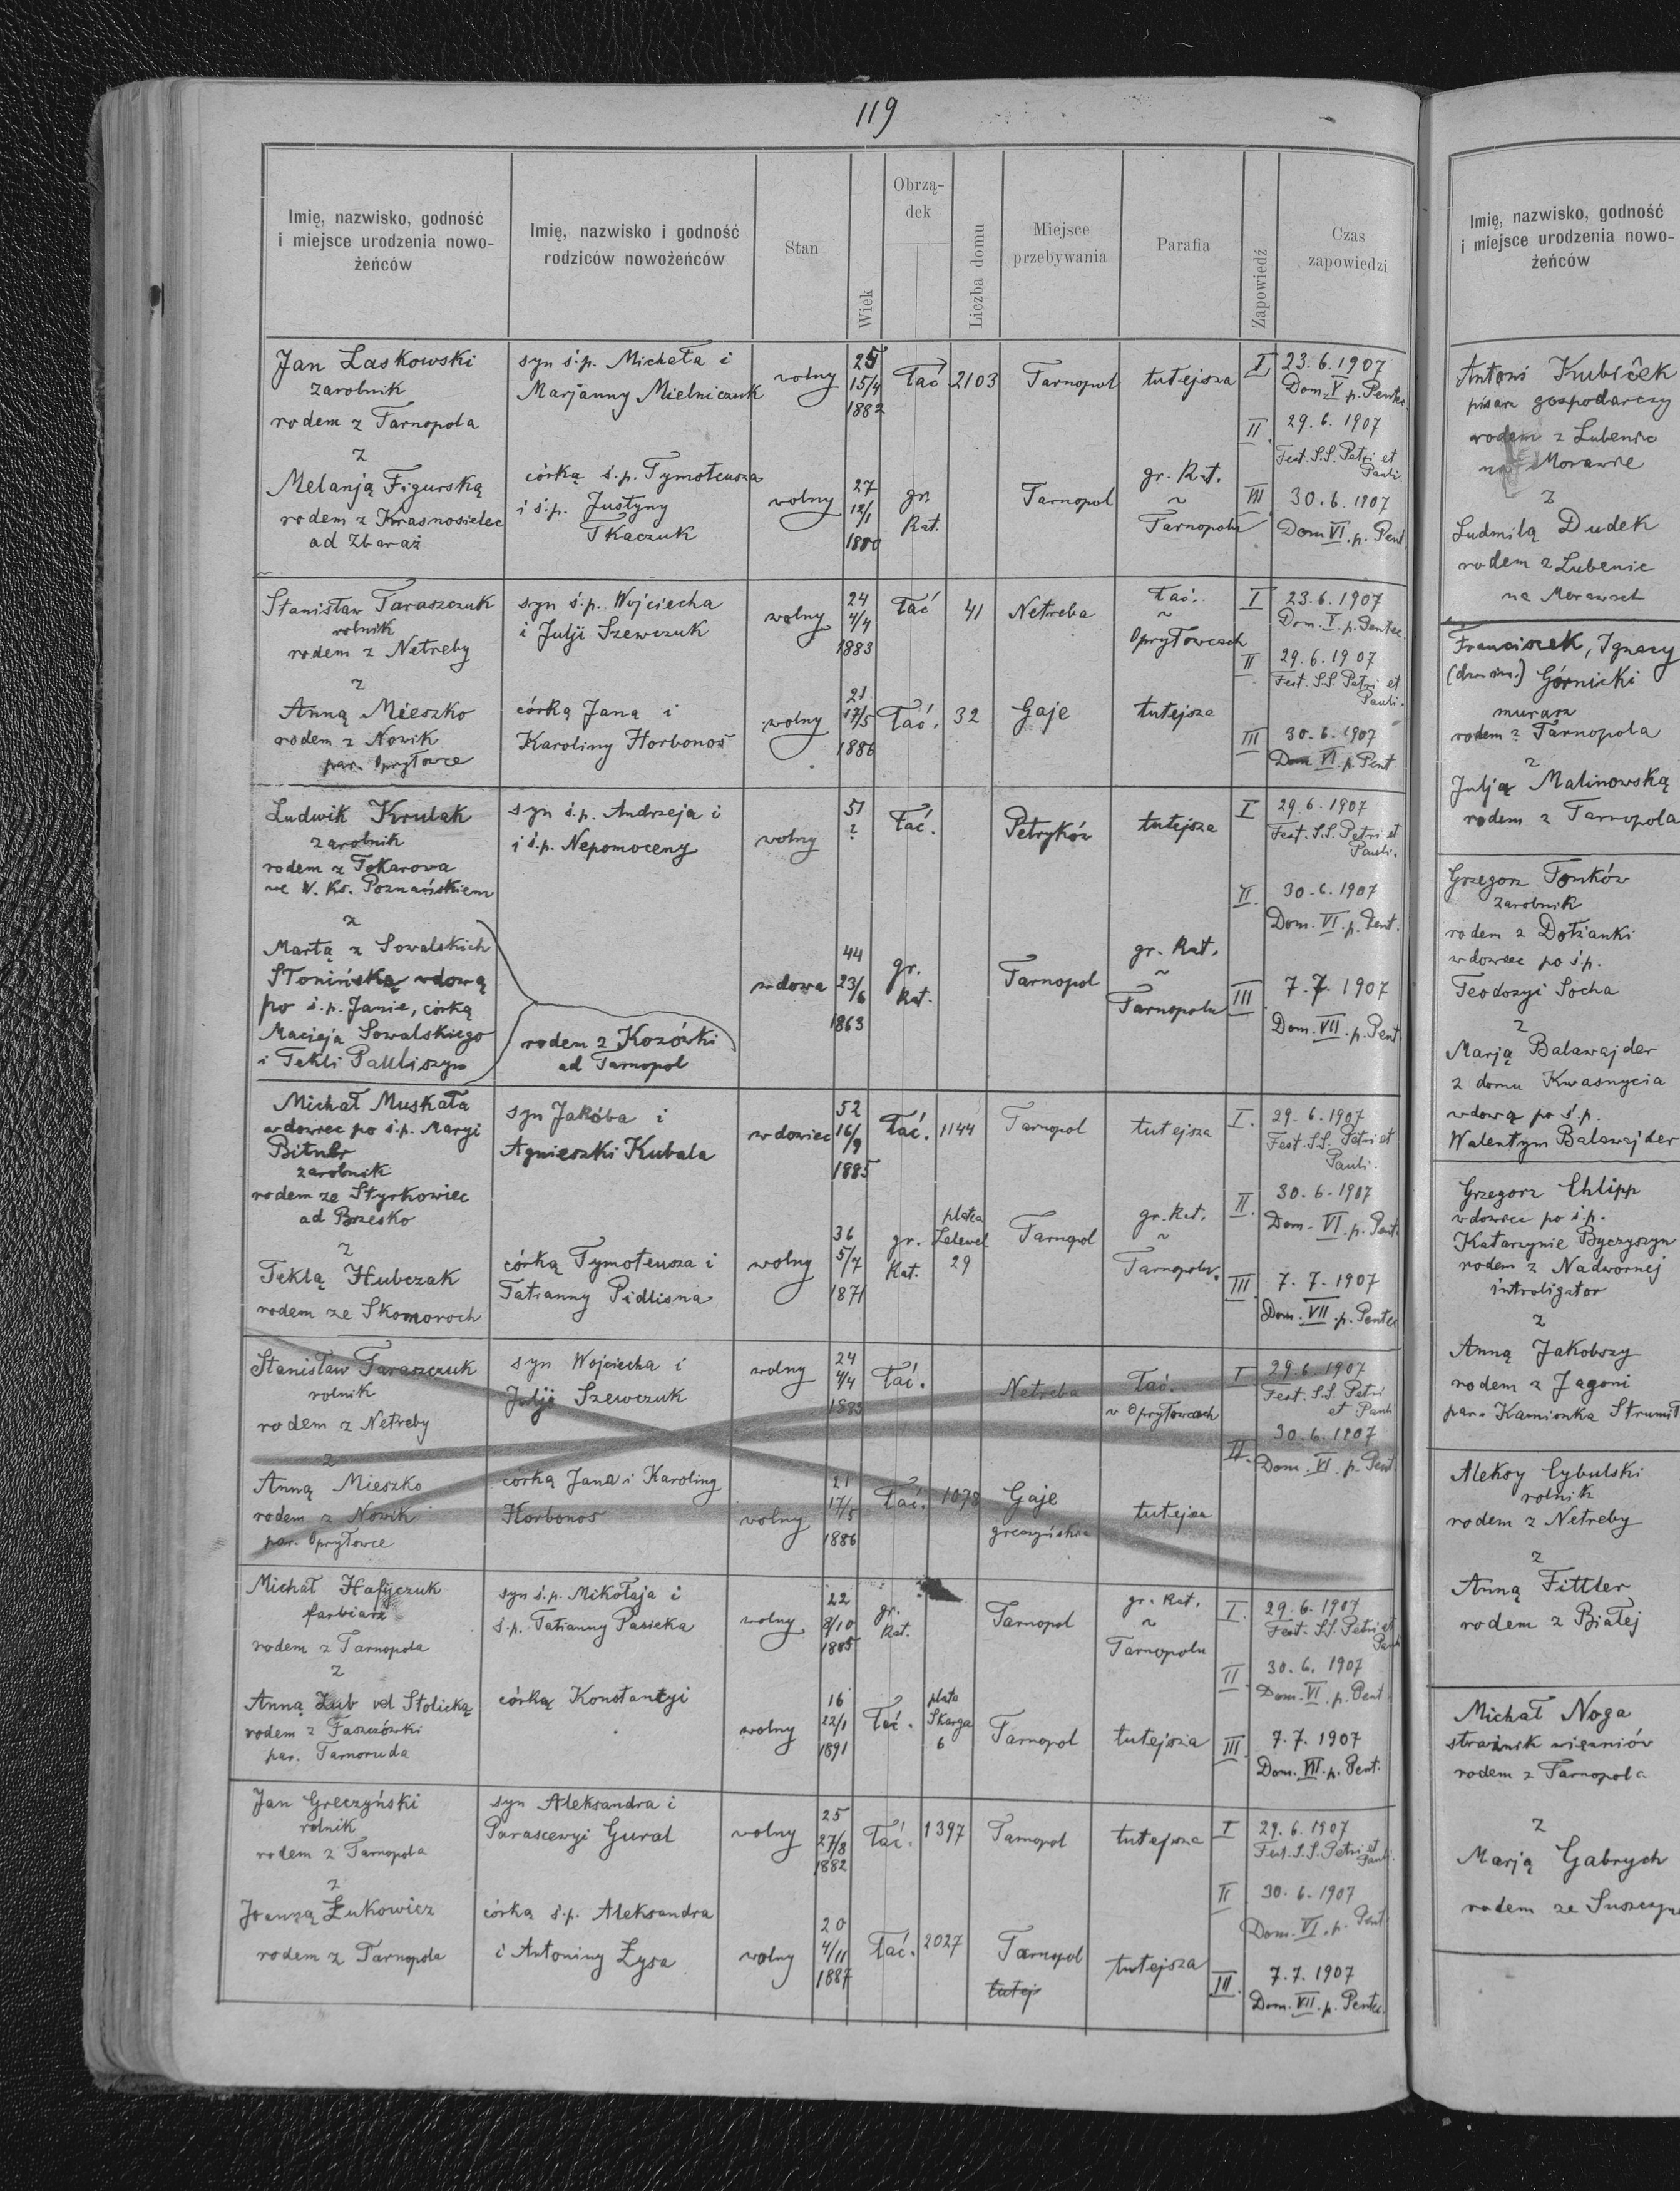 119
Imię, nazwisko, godność
i miejsce urodzenia nowo-
żeńców
Imię, nazwisko i godność
rodziców nowożeńców
Stan
Wiek
Obrzą-
dek
Liczba domu
Miejsce
przebywania
Parafia
Zapowiedź
Czas
zapowiedzi
Jan Laskowski
zarobnik
rodem z Tarnopola
z
Melanją Figurską
rodem z Krasnosielec
ad Zbaraż
syn ś.p. Michała i
Marjanny Mielniczuk
córką ś.p. Tymoteusza
i ś.p. Justyny
Tkaczuk
wolny
wolny
25
15/4
1882
27
12/1
1880
łać
gr.
kat.
2103
Tarnopol
Tarnopol
tutejsza
gr. kat.
w
Tarnopolu
I 23.6.1907
Dom. V p. Pentec.
II 29.6.1907
Fest. S.S. Petri et
Pauli.
III 30.6.1907
Dom VI. p. Pent.
Stanisław Taraszczuk
rolnik
rodem z Netreby
z
Anną Mieszko
rodem z Nowik
par. Opryłowce
syn ś.p. Wojciecha
i Julji Szewczuk
córką Jana i
Karoliny Horbonos
wolny
wolny
24
4/4
1883
21
17/5
1886
łać
łać.
41
32
Netreba
Gaje
łać.
w
Opryłowcach
tutejsza
I 23.6.1907
Dom. V. p. Pentec.
II 29.6.1907
Fest. S.S. Petri et
Pauli.
III 30.6.1907
Dom VI. p. Pent.
Ludwik Krulak
zarobnik
rodem z Tokarowa
we W. Ks. Poznańskiem
z
Martą z Sowalskich
Słonińską wdową
po ś.p. Janie, córką
Macieja Sowalskiego
i Tekli Pauliszyn
syn ś.p. Andrzeja i
i ś.p. Nepomoceny
rodem z Kozówki
ad Tarnopol
wolny
wdowa
51
?
44
23/6
1863
łać.
gr.
kat.
Petryków
Tarnopol
tutejsza
gr. kat.
w
Tarnopolu
I 29.6.1907
Fest. S.S. Petri et
Pauli.
II. 30.6.1907
Dom. VI. p. Pent.
III 7.7.1907
Dom. VII. p. Pent.
Michał Muskała
wdowiec po ś.p. Maryi
zarobnik
rodem ze Styrkowiec
ad Brzesko
z
Teklą Hubczak
rodem ze Skomoroch
syn Jakóba i
Agnieszki Kubala
córką Tymoteusza i
Tatianny Pidlisna
wdowiec
wolny
52
16/9
1885
36
5/7
1871
łać.
gr.
kat.
1144
płaca
Lelewel
29
Tarnopol
Tarnopol
tutejsza
gr. kat.
w
Tarnopolu.
I. 29.6.1907
Fest. S.S. Petri et
Pauli.
II. 30.6.1907
Dom. VI. p. Pent.
III 7.7.1907
Dom. VII. p. Pentec
Stanisław Taraszczuk
rolnik
rodem z Netreby
z
Anną Mieszko
rodem z Nowik
par. Opryłowce
syn Wojciecha i
Julji Szewczuk
córką Jana i Karoliny
Horbonos
wolny
wolny
24
4/4
1883
21
17/5
1886
łać.
łać.
1078
Netreba
Gaje
łać.
w Opryłowcach
tutejsza
I 29.6.1907
Fest. S.S. Petri
et Pauli
II. 30.6.1907
Dom. VI. p. Pent.
Michał Hafijczuk
farbiarz
rodem z Tarnopola
z
Anną Zub vel Stolicką
rodem z Faszczówki
par. Tarnoruda
syn ś.p. Mikołaja i
ś.p. Tatianny Pasieka
córką Konstantyi
wolny
wolny
22
8/10
1885
16
22/1
1891
gr.
kat.
łać.
Skarga
6
Tarnopol
Tarnopol
gr. kat.
w
Tarnopolu
tutejsza
I. 29.6.1907
Fest. S.S. Petri et
Pauli
II 30.6.1907
Dom. VI. p. Pent.
III 7.7.1907
Dom. VII. p. Pent.
Jan Greczyński
rolnik
rodem z Tarnopola
z
Joanną Żukowicz
rodem z Tarnopola
syn Aleksandra i
Parascewyi Gural
córka ś.p. Aleksandra
i Antoniny Łysa
wolny
wolny
25
27/8
1882
20
4/11
1887
łać.
łać.
1397
2027
Tarnopol
Tarnopol
tutej
tutejsza
tutejsza
I 29.6.1907
Fest. S.S. Petri et
Pauli.
II 30.6.1907
Dom. VI. p. Pent
III. 7.7.1907
Dom. VII. p. Pentec.
Imię, nazwisko, godność
i miejsce urodzenia nowo-
żeńców
Antoni Kubíček
pisarz gospodarczy
rodem z Lubenic
na Morawie
z
Ludmilą Dudek
rodem z Lubenic
na Morawach
Franciszek, Ignacy
(dwoim.) Górnicki
murarz
rodem z Tarnopola
z
Julją Malinowską
rodem z Tarnopola
Grzegorz Fonków
zarobnik
rodem z Dołżanki
wdowiec po ś.p.
Teodozyi Socha
z
Marją Balawajder
z domu Kwasnycia
wdową po ś.p.
Walentym Balawajder
Grzegorz Chlipp
wdowiec po ś.p.
Katarzynie Byczyszyn
rodem z Nadwornej
introligator
z
Anną Jakobszy
rodem z Jagoni
par. Kamionka Strumił
Aleksy Cybulski
rolnik
rodem z Netreby
z
Anną Fittler
rodem z Białej
Michał Noga
strażnik więzniów
rodem z Tarnopola
z
Marją Gabrych
rodem ze